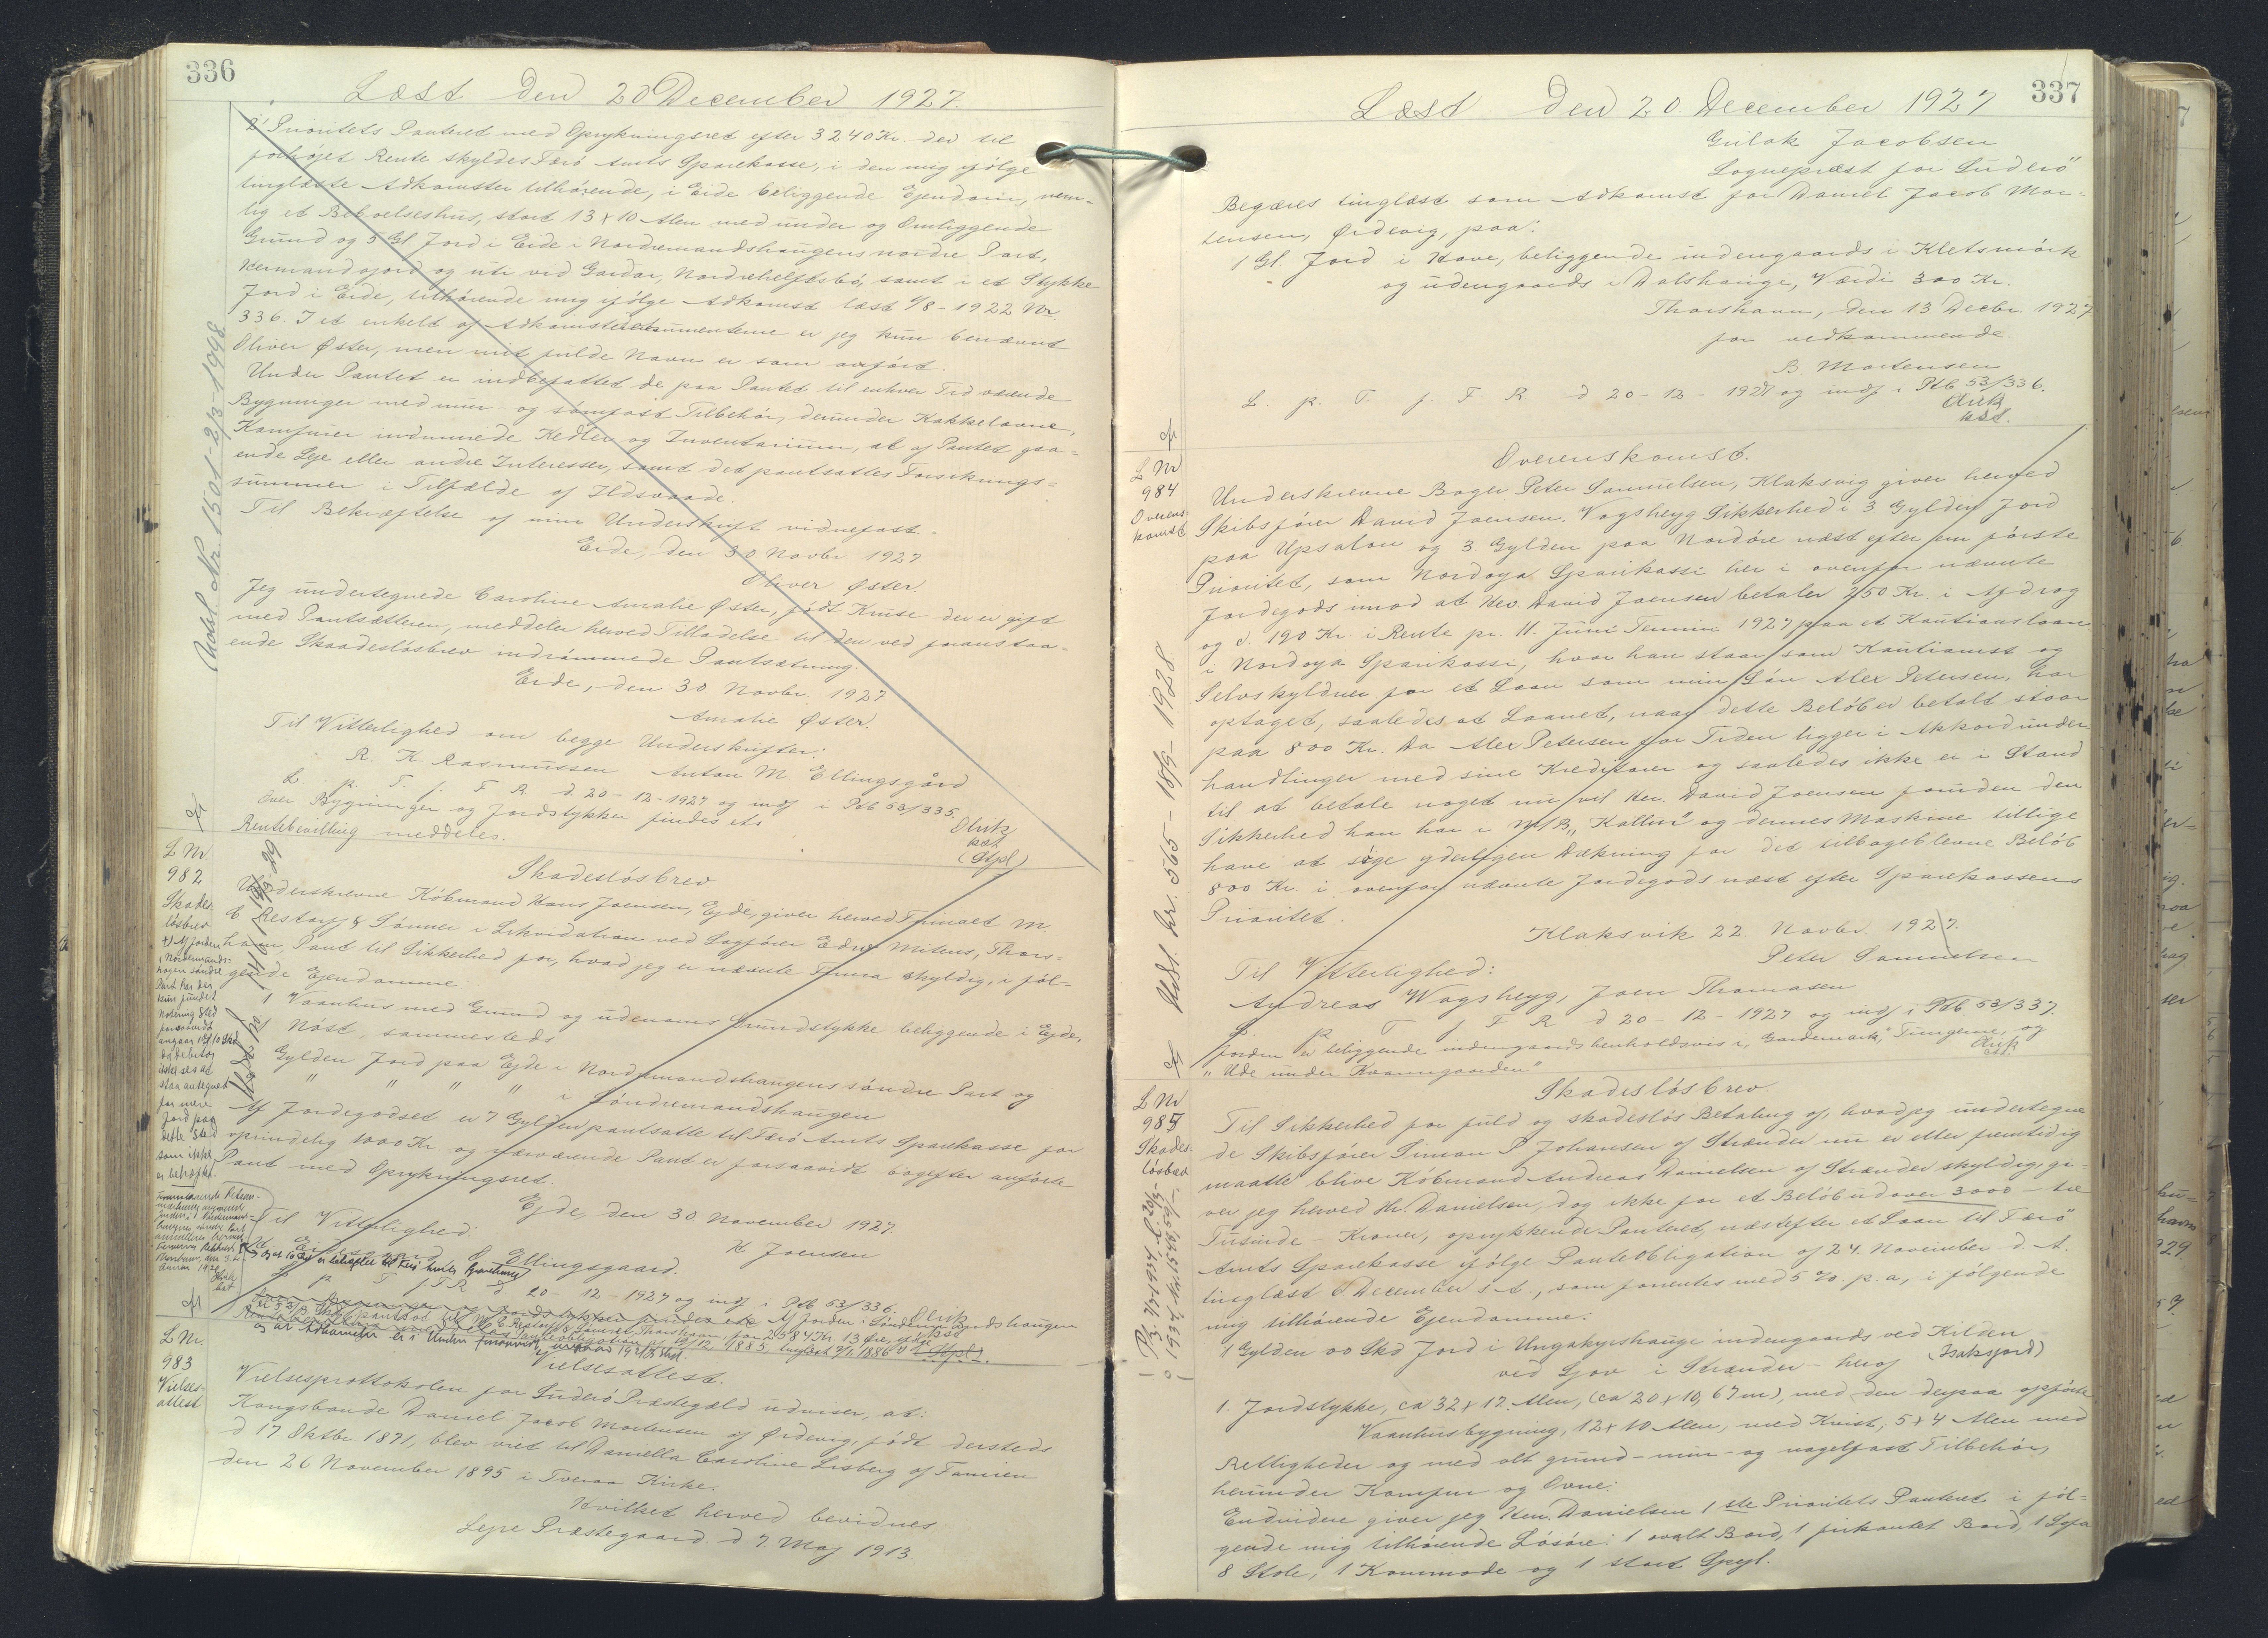 336
Læst den 20 December 1927.
2' Prioritets Panteret med Oprykningsret efter 3240 Kr. der til
forhøjet Rente skyldes Færø Amts Sparekasse, i den mig ifølge
tinglæste Adkomster tilhørende, i Eide beliggende Ejendom, nem-
lig et Beboelseshus, stort 13 x 10 Alen med under og Omliggende
Grund og 5 Gl. Jord i Eide i Nordremandshaugens nordre Part,
og uti ved Gardar, samt i et Stykke
Jord i Eide, tilhørende mig ifølge Adkomst læst 1/8 - 1922 Nr.
336. I et enkelt af Adkomstdokumenterne er jeg kun benævnt
Oliver Øster, men mit fulde Navn er som anført.
Under Pantet er indbefattet de paa Pantet til enhver Tid værende
Bygninger med mur- og sømfast Tilbehør, derunder Kakkelovne,
Komfurer indmurede Kedler og Inventarium, at af Pantet gaa-
ende Leje eller andre Interesser, samt det pantsattes Forsikrings-
summer i Tilfælde af Ildsvaade.
Til Bekræftelse af min Underskrift vidnefast.
Eide, den 30 Novbr 1927
Oliver Øster.
Jeg undertegnede Caroline Amalie Øster, født Kruse der er gift
med Pantsætteren, meddeler herved Tilladelse til den ved foranstaa-
ende Skadesløsbrev indrømmede Pantsætning.
Eide, den 30 Novbr. 1927
Amalie Øster.
Til Vitterlighed om begge Underskrifter:
R. K. Rasmussen Anton M Ellingsgård
L. p. T. f. F R. d. 20-12-1927 og indf i Pdb 53/335.
Over Bygninger og Jordstykker findes ets
Rentebevilling meddeles.
Olrik
kst.
(Stpl)
Udsl. Nr. 1501 - 2/3 - 1098
L Nr.
982
Skades
løsbrev
Skadesløsbrev
Underskrevne Købmand Hans Joensen, Ejde, giver herved Firmaet M
C Restorff & Sønner i Likvidation ved Sagfører Edw. Mitens, Thors-
havn, Pant til Sikkerhed for, hvad jeg er nævnte Firma skyldig, i føl-
gende Ejendomme
1 Vaanhus med Grund og udenoms Grundstykke beliggende i Ejde,
1 Nøst, sammesteds
Gylden Jord paa Ejde i Nordremandshaugens søndre Part og
" " " " i Søndremandshaugen
Af Jordegodset er 7 Gylden pantsatte til Færø Amts Sparekasse for
oprindelig 1000 Kr. og nærværende Pant er forsaavidt bagefter anførte
Pant med Oprykningsret.
Ejde, den 30 November 1927.
Til Vitterlighed:
H Joensen
Ellingsgaard.
L p T f F R d 20-12-1927 og indf i Pdb 53/336. Olrik
kst
L Nr.
983
Vielses-
attest
Vielsesattest.
Vielsesprottokolen for Suderø Præstegæld udviser, at:
Kongsbonde Daniel Jacob Mortensen af Ørdevig, født dersteds
d 17 Oktbr 1871, blev viet til Daniella Caroline Lisberg af Famien
den 26 November 1895 i Tveraa Kirke.
Hvilket herved bevidnes
Lejre Præstegaard. d 7. Maj 1913
337
Læst den 20 December 1927
Gulak Jacobsen
Sognepræst for Suderø
Begæres tinglæst som Adkomst for Daniel Jacob Mor-
tensen, Ørdevig, paa:
1 Gl. Jord i Hove, beliggende indengaards i Kletsmørk
og udengaards i Dalshauge, Værdi 300 Kr.
Thorshavn, den 13 Decbr. 1927
for vedkommende.
B. Mortensen
L. p. T. f. F R d 20-12-1927 og indf i Pdb 53/336.
Olrik
kst.
L Nr
984
Overens-
komst
Overenskomst.
Underskrevne Bager Peter Samuelsen, Klaksvig giver herved
Skibsfører David Joensen, Vagsheyg Sikkerhed i 3 Gylden Jord
paa Upsalon og 3 Gylden paa Nordøre næst efter den første
Prioritet, som Nordoya Sparikassi her i ovenfor nævnte
Jordegods imod at Hr. David Joensen betaler 250 Kr. i Afdrag
og c. 190 Kr. i Rente pr. 11. Juni Termin 1927 paa et Kautionslaan
i Nordoya Sparikassi, hvor han staar som Kautionist og
Selvskyldner for et Laan som min Søn Alex Petersen, har
optaget, saaledes at Laanet, naar dette Beløb er betalt staar
paa 800 Kr. Da Alex Petersen for Tiden ligger i Akkordunder-
handlinger med sine Kreditorer og saaledes ikke er i Stand
til at betale noget nu vil Hr. David Joensen foruden den
Sikkerhed han har i M/B „Kallur" og dennes Maskine tillige
have at søge yderligere Dækning for det tilbageblevne Beløb
800 Kr. i ovenfor nævnte Jordegods næst efter Sparekassens
Prioritet.
Klaksvik 22. Novbr. 1927.
Peter Samuelsen
Til Vitterlighed:
Andreas Wagsheyg, Joen Thomasen
L. p T f F R d 20-12-1927 og indf i Pdb 53/337.
Jorden er beliggende indengaards henholdsvis i „Gardemark", Tungerne, og
„Ude under Kvanngaarden"
Olrik
kst.
Udsl. Nr. 565 - 18/5 - 1928
L Nr
985
Skades-
løsbrev
Skadesløsbrev
Til Sikkerhed for fuld og skadesløs Betaling af, hvad jeg undertegne
de Skibsfører Simon P Johansen af Strænder nu er eller fremtidig
maatte blive Købmand Andreas Danielsen af Strænder skyldig, gi-
ver jeg herved Hr. Danielsen, dog ikke for et Beløb udover 3000 - tre
Tusinde - Kroner, oprykkende Panteret, næstefter et Laan til Færø
Amts Sparekasse ifølge Panteobligation af 24. November d. A.
tinglæst 6 December s. A., som forrentes med 5 % p. a, i følgende
mig tilhørende Ejendomme:
1 Gylden 00 Skd Jord i Ungakyrshauge indengaards ved Kilden
ved Gjov i Strænder - heraf (Isaksjord)
1. Jordstykke, ca 32 x 17. Alen, (ca 20 x 10,67 m), med den derpaa opførte
Vaanhusbygning, 12 x 10 Alen, med Kvist, 5 x 4 Alen med
Rettigheder og med alt grund- mur- og nagelfast Tilbehør,
herunder Komfur og Ovne.
Endvidere giver jeg Hr. Danielsen 1ste Prioritets Panteret i føl-
gende mig tilhørende Løsøre: 1 ovalt Bord, 1 firkantet Bord, 1 Sofa
8 Stole, 1 Kommode og 1 stort Spejl.